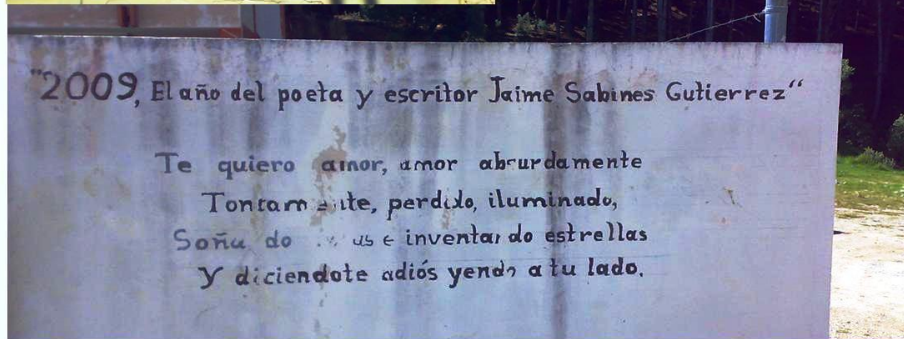 "2009, El año del poeta y escritor Jaime Sabines Gutierrez"
Te quiero amor, amor absurdamente
Tontamente, perdido, iluminado,
Soñando e inventando estrellas
Y diciendote adiós yendo a tu lado.